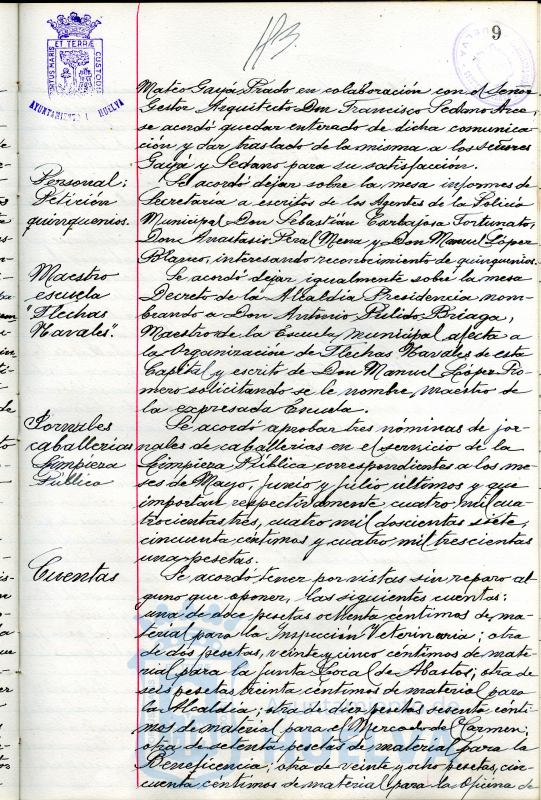 ET TERRÆ
PORTUS MARIS
CUSTODIA
AYUNTAMIENTO HUELVA
9
Mateo Gayá Prado en colaboración con el Señor
Gestor Arquitecto Don Francisco Sedano Arce,
se acordó quedar enterado de dicha comunica-
ción y dar traslado de la misma a los señores
Gayá y Sedano para su satisfacción.
Personal:
Petición
quinquenios.
Se acordó dejar sobre la mesa informes de
Secretaria a escritos de los Agentes de la Policia
Municipal Don Sebastián Carbajosa Fortunato,
Don Anastasio Pera Mena y Don Manuel López
Blanco, interesando reconocimiento de quinquenios.
Maestro
escuela
"Flechas
Navales".
Se acordó dejar igualmente sobre la mesa
Decreto de la Alcaldia Presidencia nom-
brando a Don Antonio Pulido Briaga,
Maestro de la Escuela municipal afecta a
la Organización de Flechas Navales de esta
Capital y escrito de Don Manuel López Ro-
mero solicitando se le nombre maestro de
la expresada Escuela.
Jornales
caballerias
Limpieza
Público
Se acordó aprobar tres nóminas de jor-
nales de caballerias en el servicio de la
Limpieza Pública correspondientes a los me-
ses de Mayo, Junio y Julio últimos y que
importan respectivamente cuatro mil cua-
trocientas tres, cuatro mil doscientas siete,
cincuenta céntimos y cuatro mil trescientas
una pesetas.
Cuentas
Se acordó tener por vistas sin reparo al-
guno que oponer, las siguientes cuentas:
una de doce pesetas ochenta céntimos de ma-
terial para la Inspección Veterinaria; otra
de dos pesetas, veinte y cinco céntimos de mate-
rial para la Junta Local de Abastos; otra de
seis pesetas treinta céntimos de material para
la Alcaldia; otra de diez pesetas sesenta cénti-
mos de material para el Mercado del Carmen;
otra de setenta pesetas de material para la
Beneficencia; otra de veinte y ocho pesetas, cin-
cuenta céntimos de material para la Oficina de